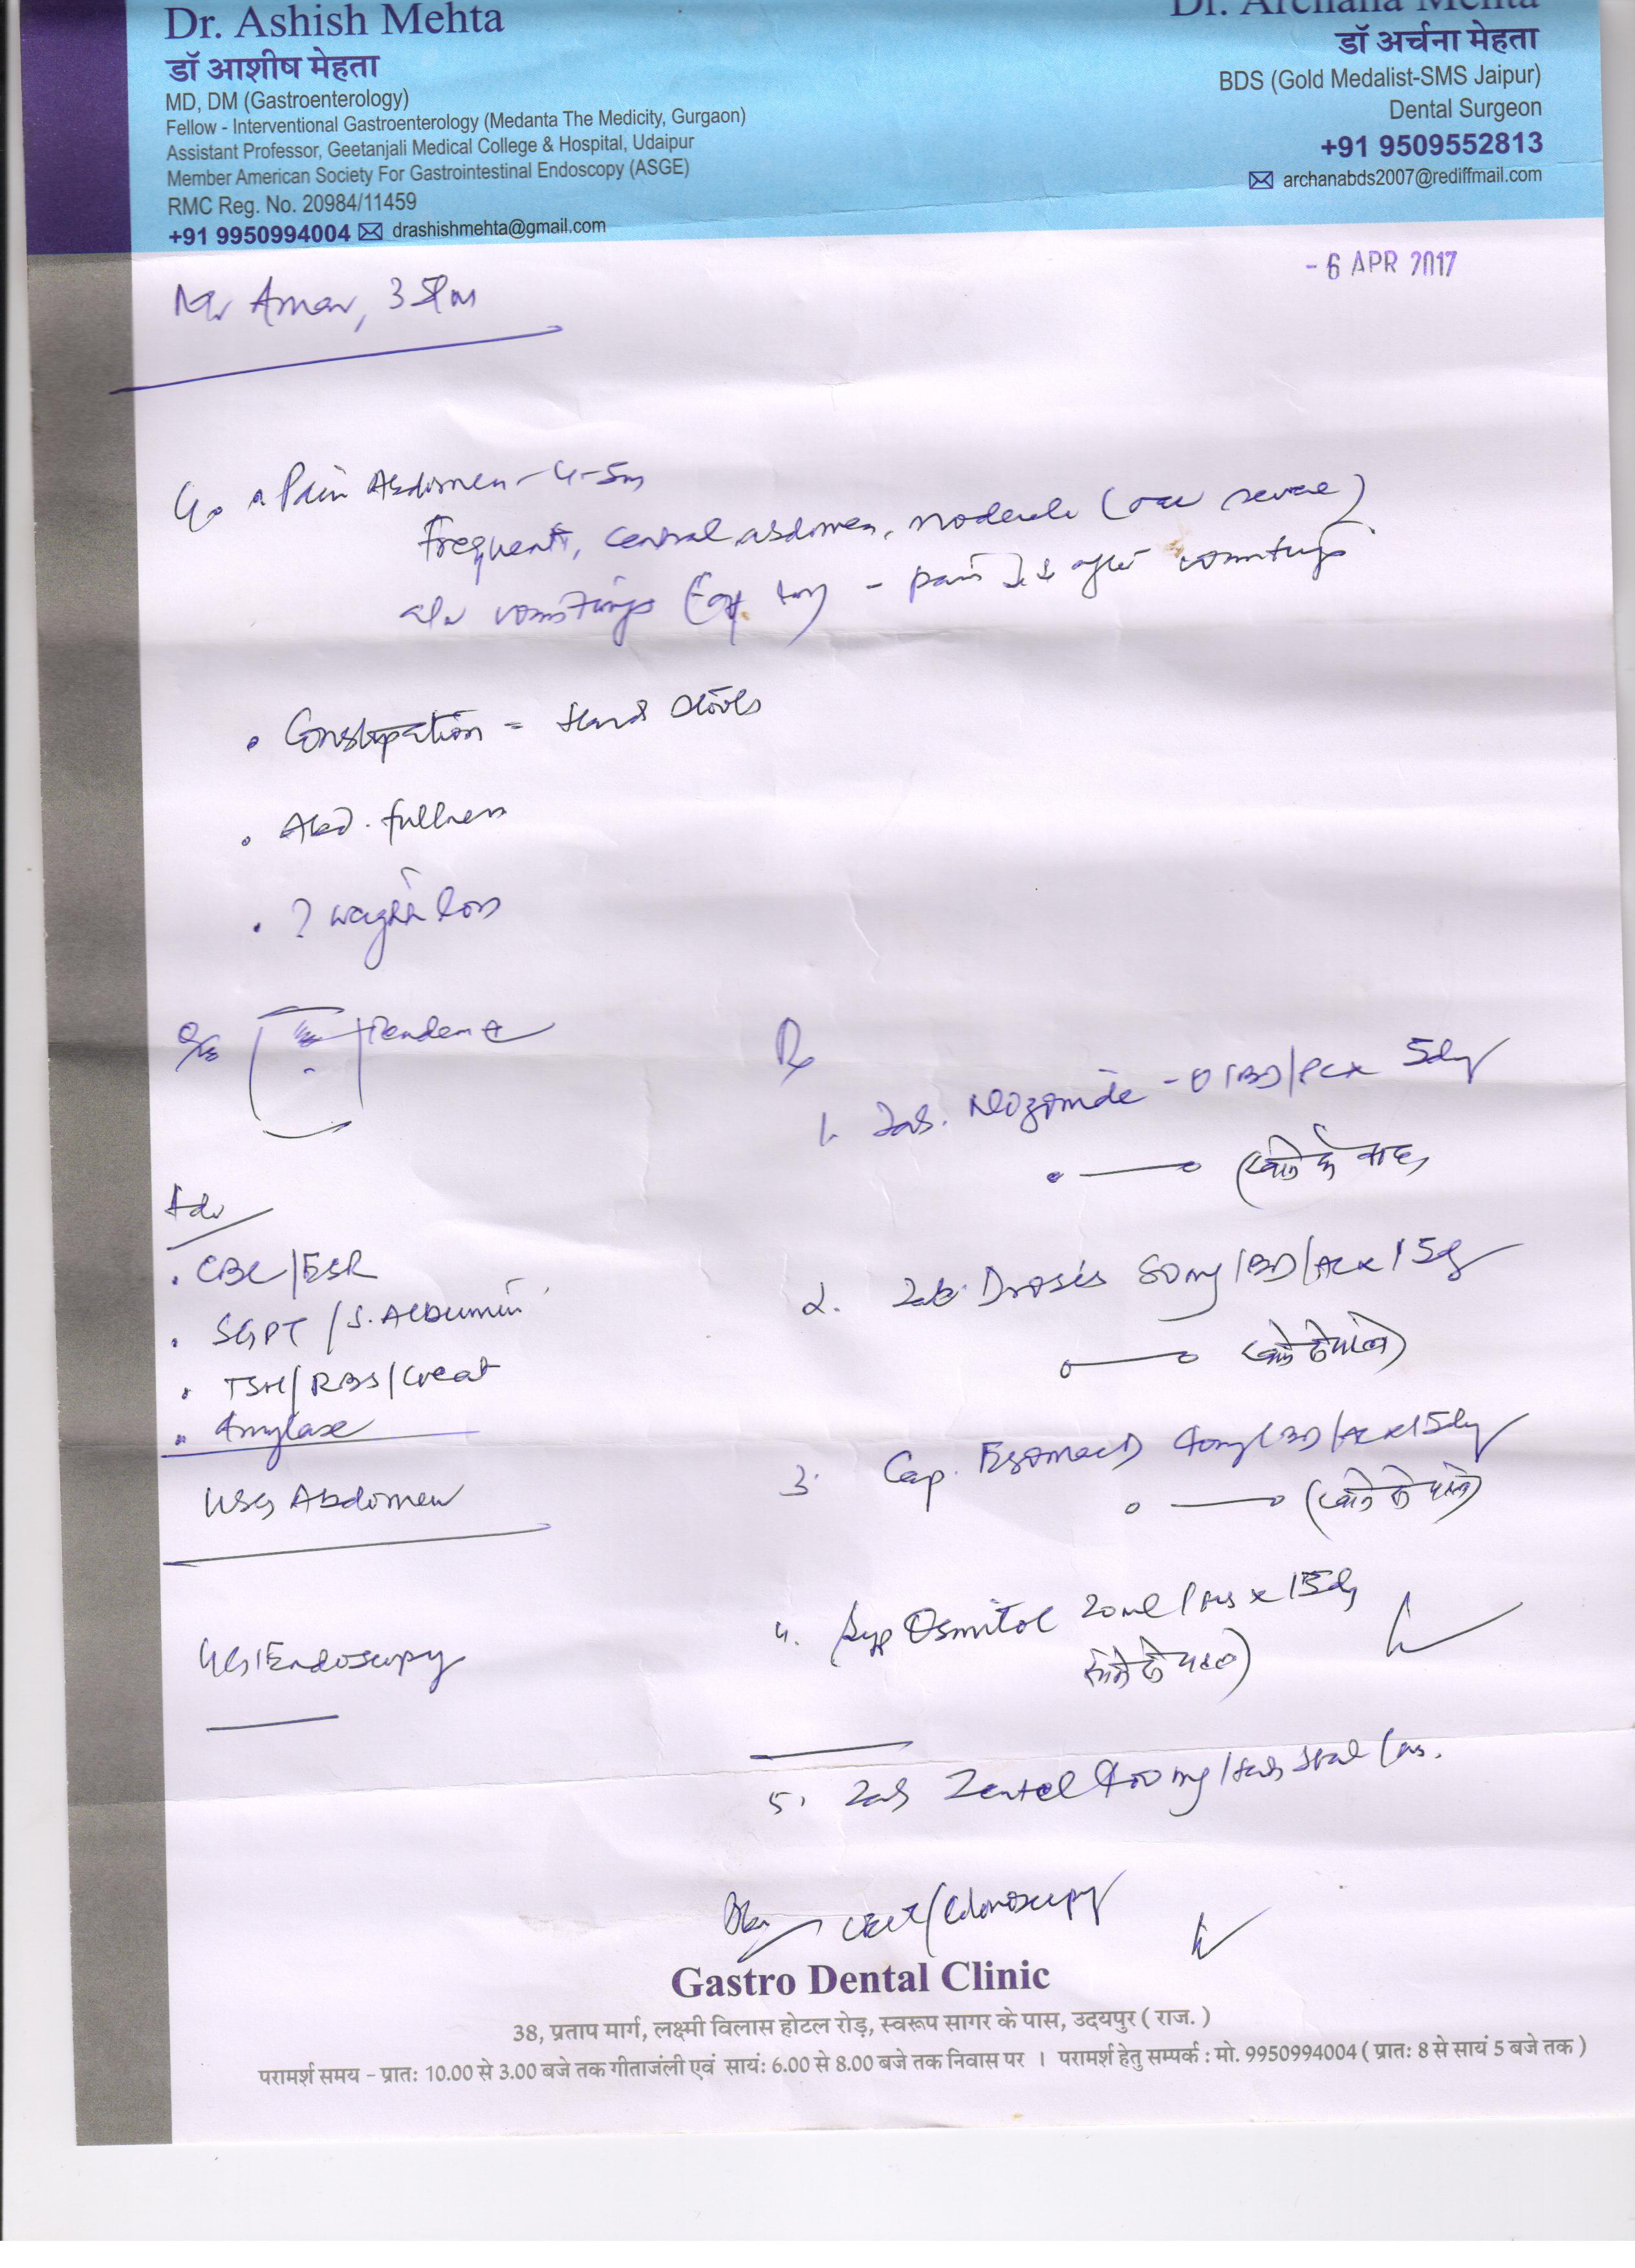 Dr. Ashish Mehta
डॉ आशीष मेहता
MD, DM (Gastroenterology)
Fellow - Interventional Gastroenterology (Medanta The Medicity, Gurgaon)
Assistant Professor, Geetanjali Medical College & Hospital, Udaipur
Member American Society For Gastrointestinal Endoscopy (ASGE)
RMC Reg. No. 20984/11459
+91 9950994004 drashishmehta@gmail.com
Dr. Archana Mehta
डॉ अर्चना मेहता
BDS (Gold Medalist-SMS Jaipur)
Dental Surgeon
+91 9509552813
archanabds2007@rediffmail.com
- 6 APR 2017
Mr Amar,
Pain Abdomen - 4-5m
Frequent, central abdomen, moderate ( severe)
vomitings - pain ↓↓ after vomitings
• Constipation = Hard stools
• Abd. fullness
• ? weight loss
O/E Tender +
Adv
• CBC/ESR
• SGPT / S. Albumin
• TSH/RBS/Creat
• Amylase
USG Abdomen
UGIEndoscopy
Rx
1. Tab. Nizonide - O 1BD/PC x 5dy
(खाने के बाद)
2. Tab. 80mg 1BD/AC x 15d
(खाने से पहले)
3. Cap. 40mg 1BD/AC x 15dy
(खाने से पहले)
4. Syp Osmitol 20ml / HS x 15d
सोने से पहले)
5. Tab Zentel 400 mg / tab stat
CECT/Colonoscopy
Gastro Dental Clinic
38, प्रताप मार्ग, लक्ष्मी विलास होटल रोड़, स्वरूप सागर के पास, उदयपुर ( राज. )
परामर्श समय - प्रातः 10.00 से 3.00 बजे तक गीताजंली एवं सायंः 6.00 से 8.00 बजे तक निवास पर । परामर्श हेतु सम्पर्क : मो. 9950994004 ( प्रातः 8 से सायं 5 बजे तक )